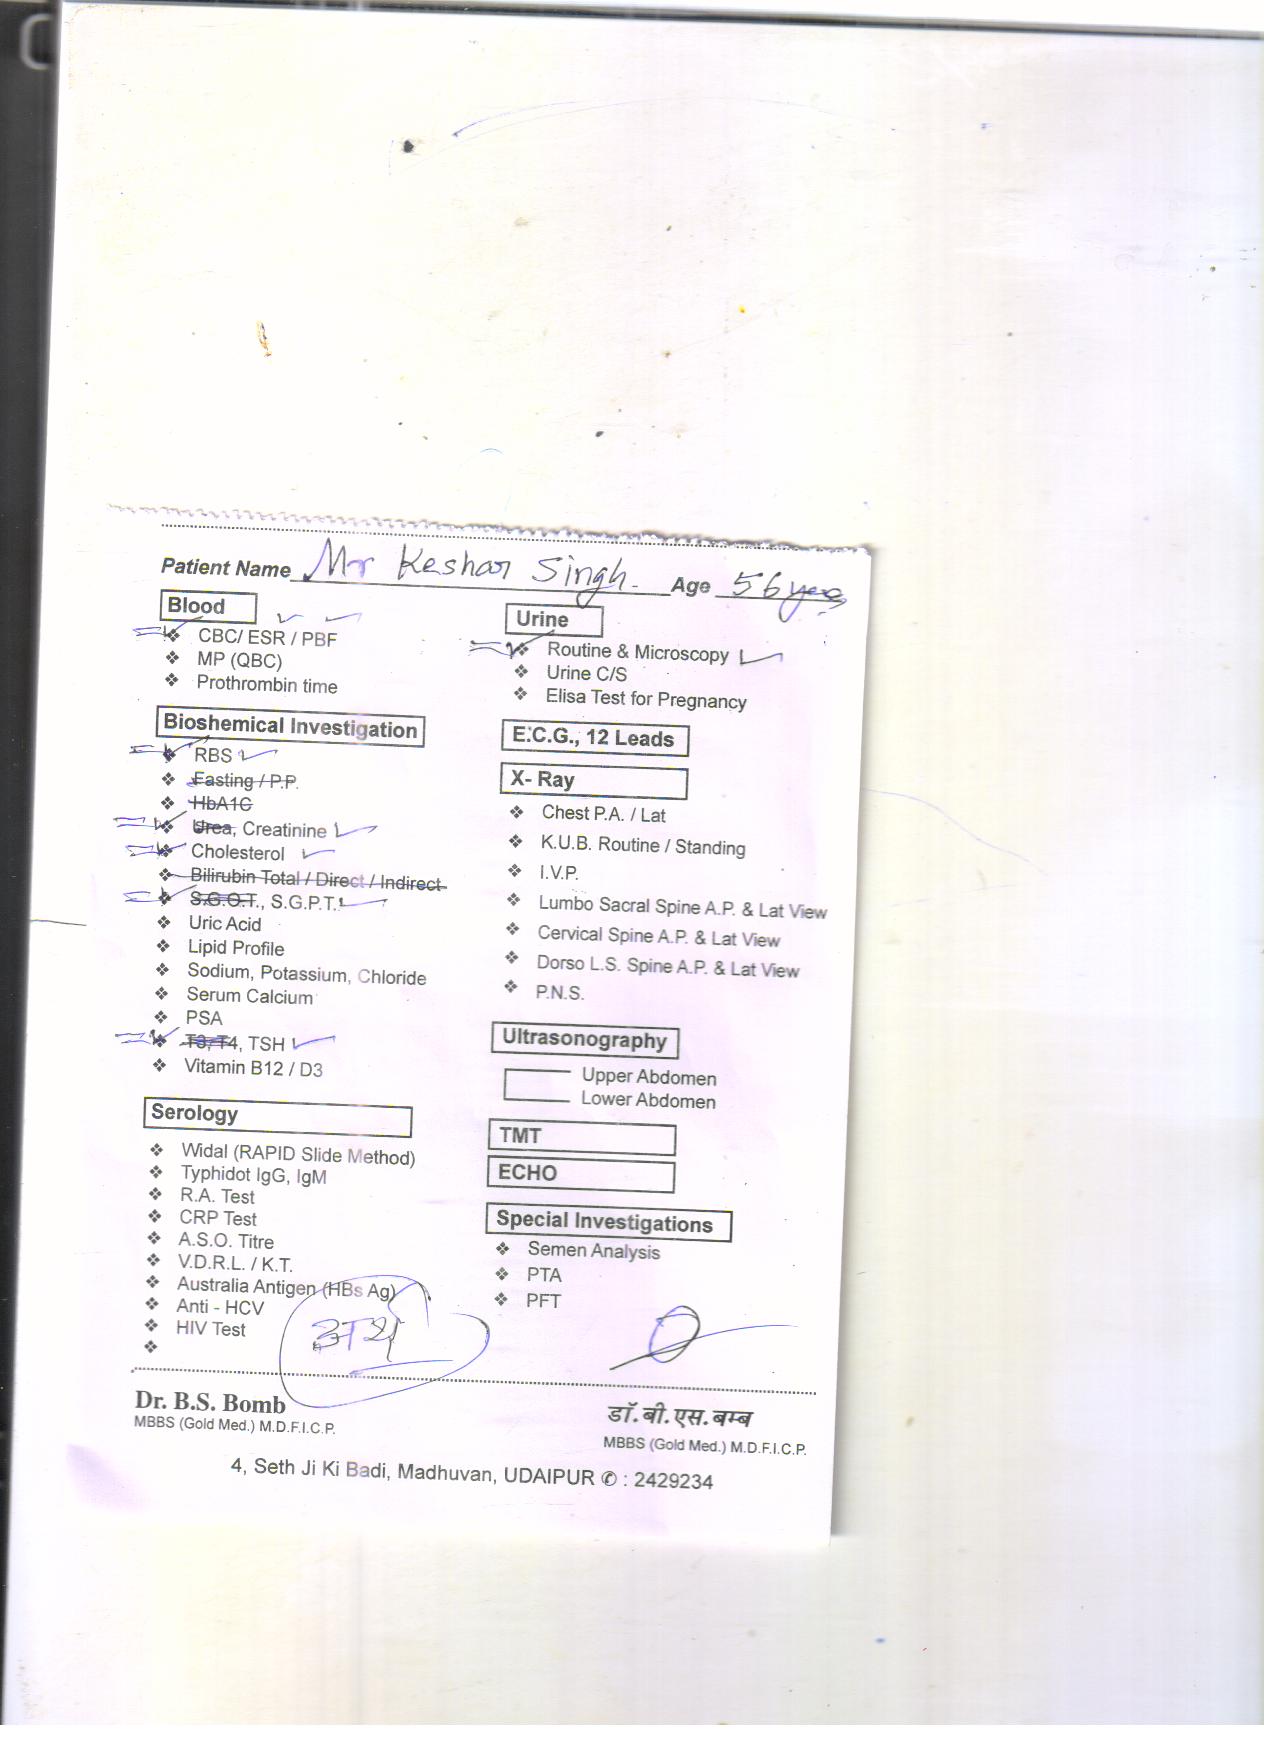 Patient Name Mr Keshar Singh. Age 56 years
Blood
CBC/ ESR / PBF
MP (QBC)
Prothrombin time
Bioshemical Investigation
RBS
Fasting / P.P.
HbA1C
Urea, Creatinine
Cholesterol
Bilirubin Total / Direct / Indirect
S.G.O.T., S.G.P.T.
Uric Acid
Lipid Profile
Sodium, Potassium, Chloride
Serum Calcium
PSA
T3, T4, TSH
Vitamin B12 / D3
Serology
Widal (RAPID Slide Method)
Typhidot IgG, IgM
R.A. Test
CRP Test
A.S.O. Titre
V.D.R.L. / K.T.
Australia Antigen (HBs Ag)
Anti - HCV
HIV Test
Urine
Routine & Microscopy
Urine C/S
Elisa Test for Pregnancy
E.C.G., 12 Leads
X- Ray
Chest P.A. / Lat
K.U.B. Routine / Standing
I.V.P.
Lumbo Sacral Spine A.P. & Lat View
Cervical Spine A.P. & Lat View
Dorso L.S. Spine A.P. & Lat View
P.N.S.
Ultrasonography
Upper Abdomen
Lower Abdomen
TMT
ECHO
Special Investigations
Semen Analysis
PTA
PFT
Dr. B.S. Bomb
MBBS (Gold Med.) M.D.F.I.C.P.
डॉ. बी. एस. बम्ब
MBBS (Gold Med.) M.D.F.I.C.P.
4, Seth Ji Ki Badi, Madhuvan, UDAIPUR ✆ : 2429234